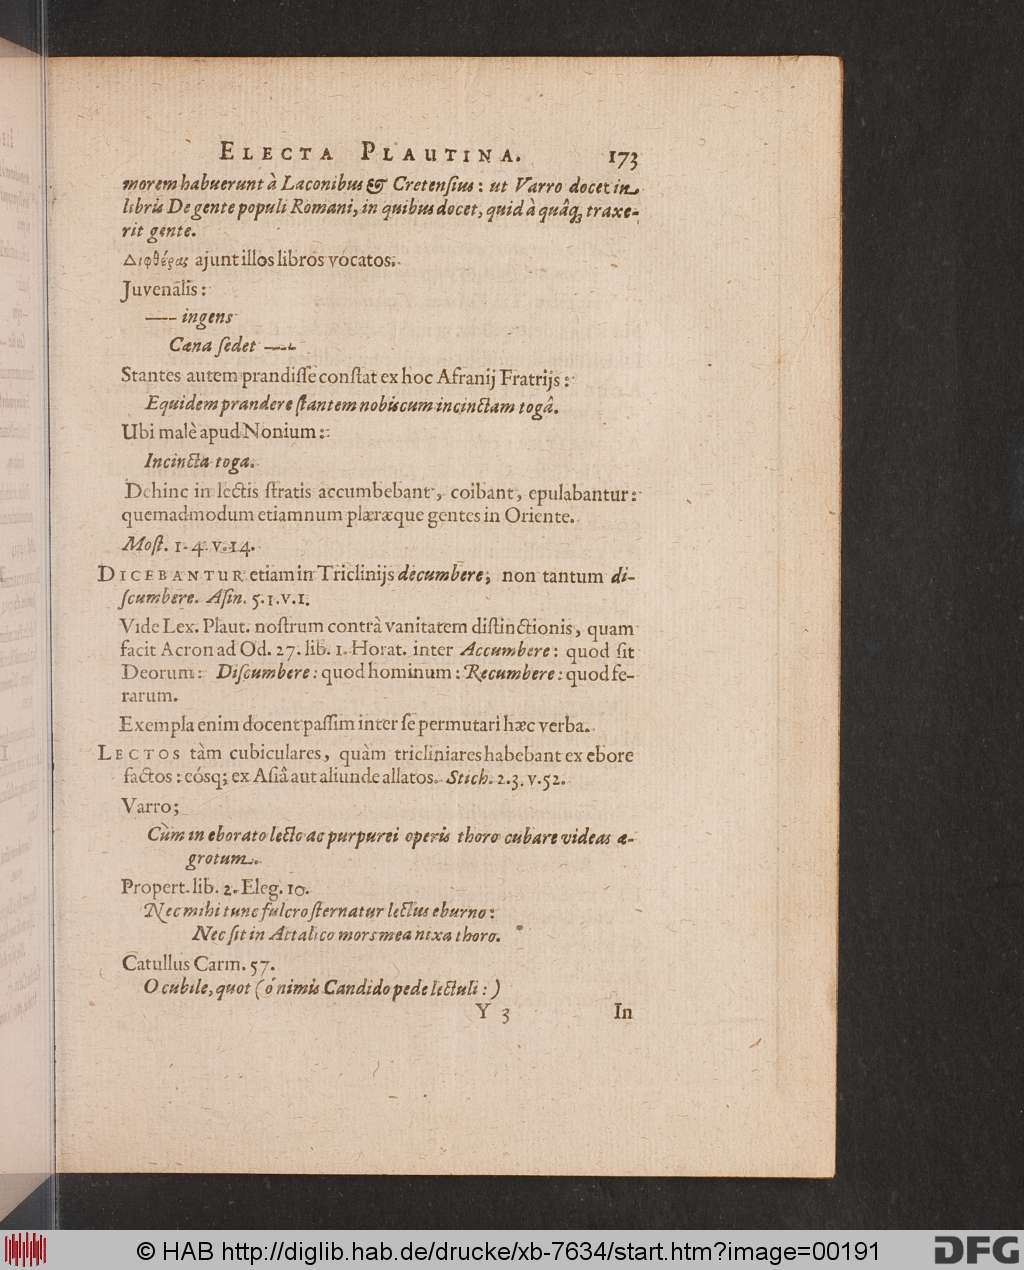 ELECTA PLAUTINA. 173
morem habuerunt à Laconibus & Cretensius: ut Varro docet in
libris De gente populi Romani, in quibus docet, quid à quâq; traxe-
rit gente.
Διφθέρας ajunt illos libros vocatos.
Juvenalis:
—— ingens
Cæna sedet ——
Stantes autem prandisse constat ex hoc Afranij Fratrijs:
Equidem prandere stantem nobiscum incinctam togâ.
Ubi malè apud Nonium:
Incincta toga.
Dehinc in lectis stratis accumbebant, coibant, epulabantur:
quemadmodum etiamnum plæræque gentes in Oriente.
Most. 1. 4. v. 14.
DICEBANTUR etiam in Triclinijs decumbere; non tantum di-
scumbere. Asin. 5. 1. v. 1.
Vide Lex. Plaut. nostrum contrà vanitatem distinctionis, quam
facit Acron ad Od. 27. lib. 1. Horat. inter Accumbere: quod sit
Deorum: Discumbere: quod hominum: Recumbere: quod fe-
rarum.
Exempla enim docent passim inter se permutari hæc verba.
LECTOS tàm cubiculares, quàm tricliniares habebant ex ebore
factos: eósq; ex Asiâ aut aliunde allatos. Stich. 2. 3. v. 52.
Varro;
Cùm in eborato lecto ac purpurei operis thoro cubare videas æ-
grotum.
Propert. lib. 2. Eleg. 10.
Nec mihi tunc fulcro sternatur lectus eburno:
Nec sit in Attalico mors mea nixa thoro.
Catullus Carm. 57.
O cubile, quot (ó nimis Candido pede lectuli:)
Y 3 In
© HAB http://diglib.hab.de/drucke/xb-7634/start.htm?image=00191
DFG